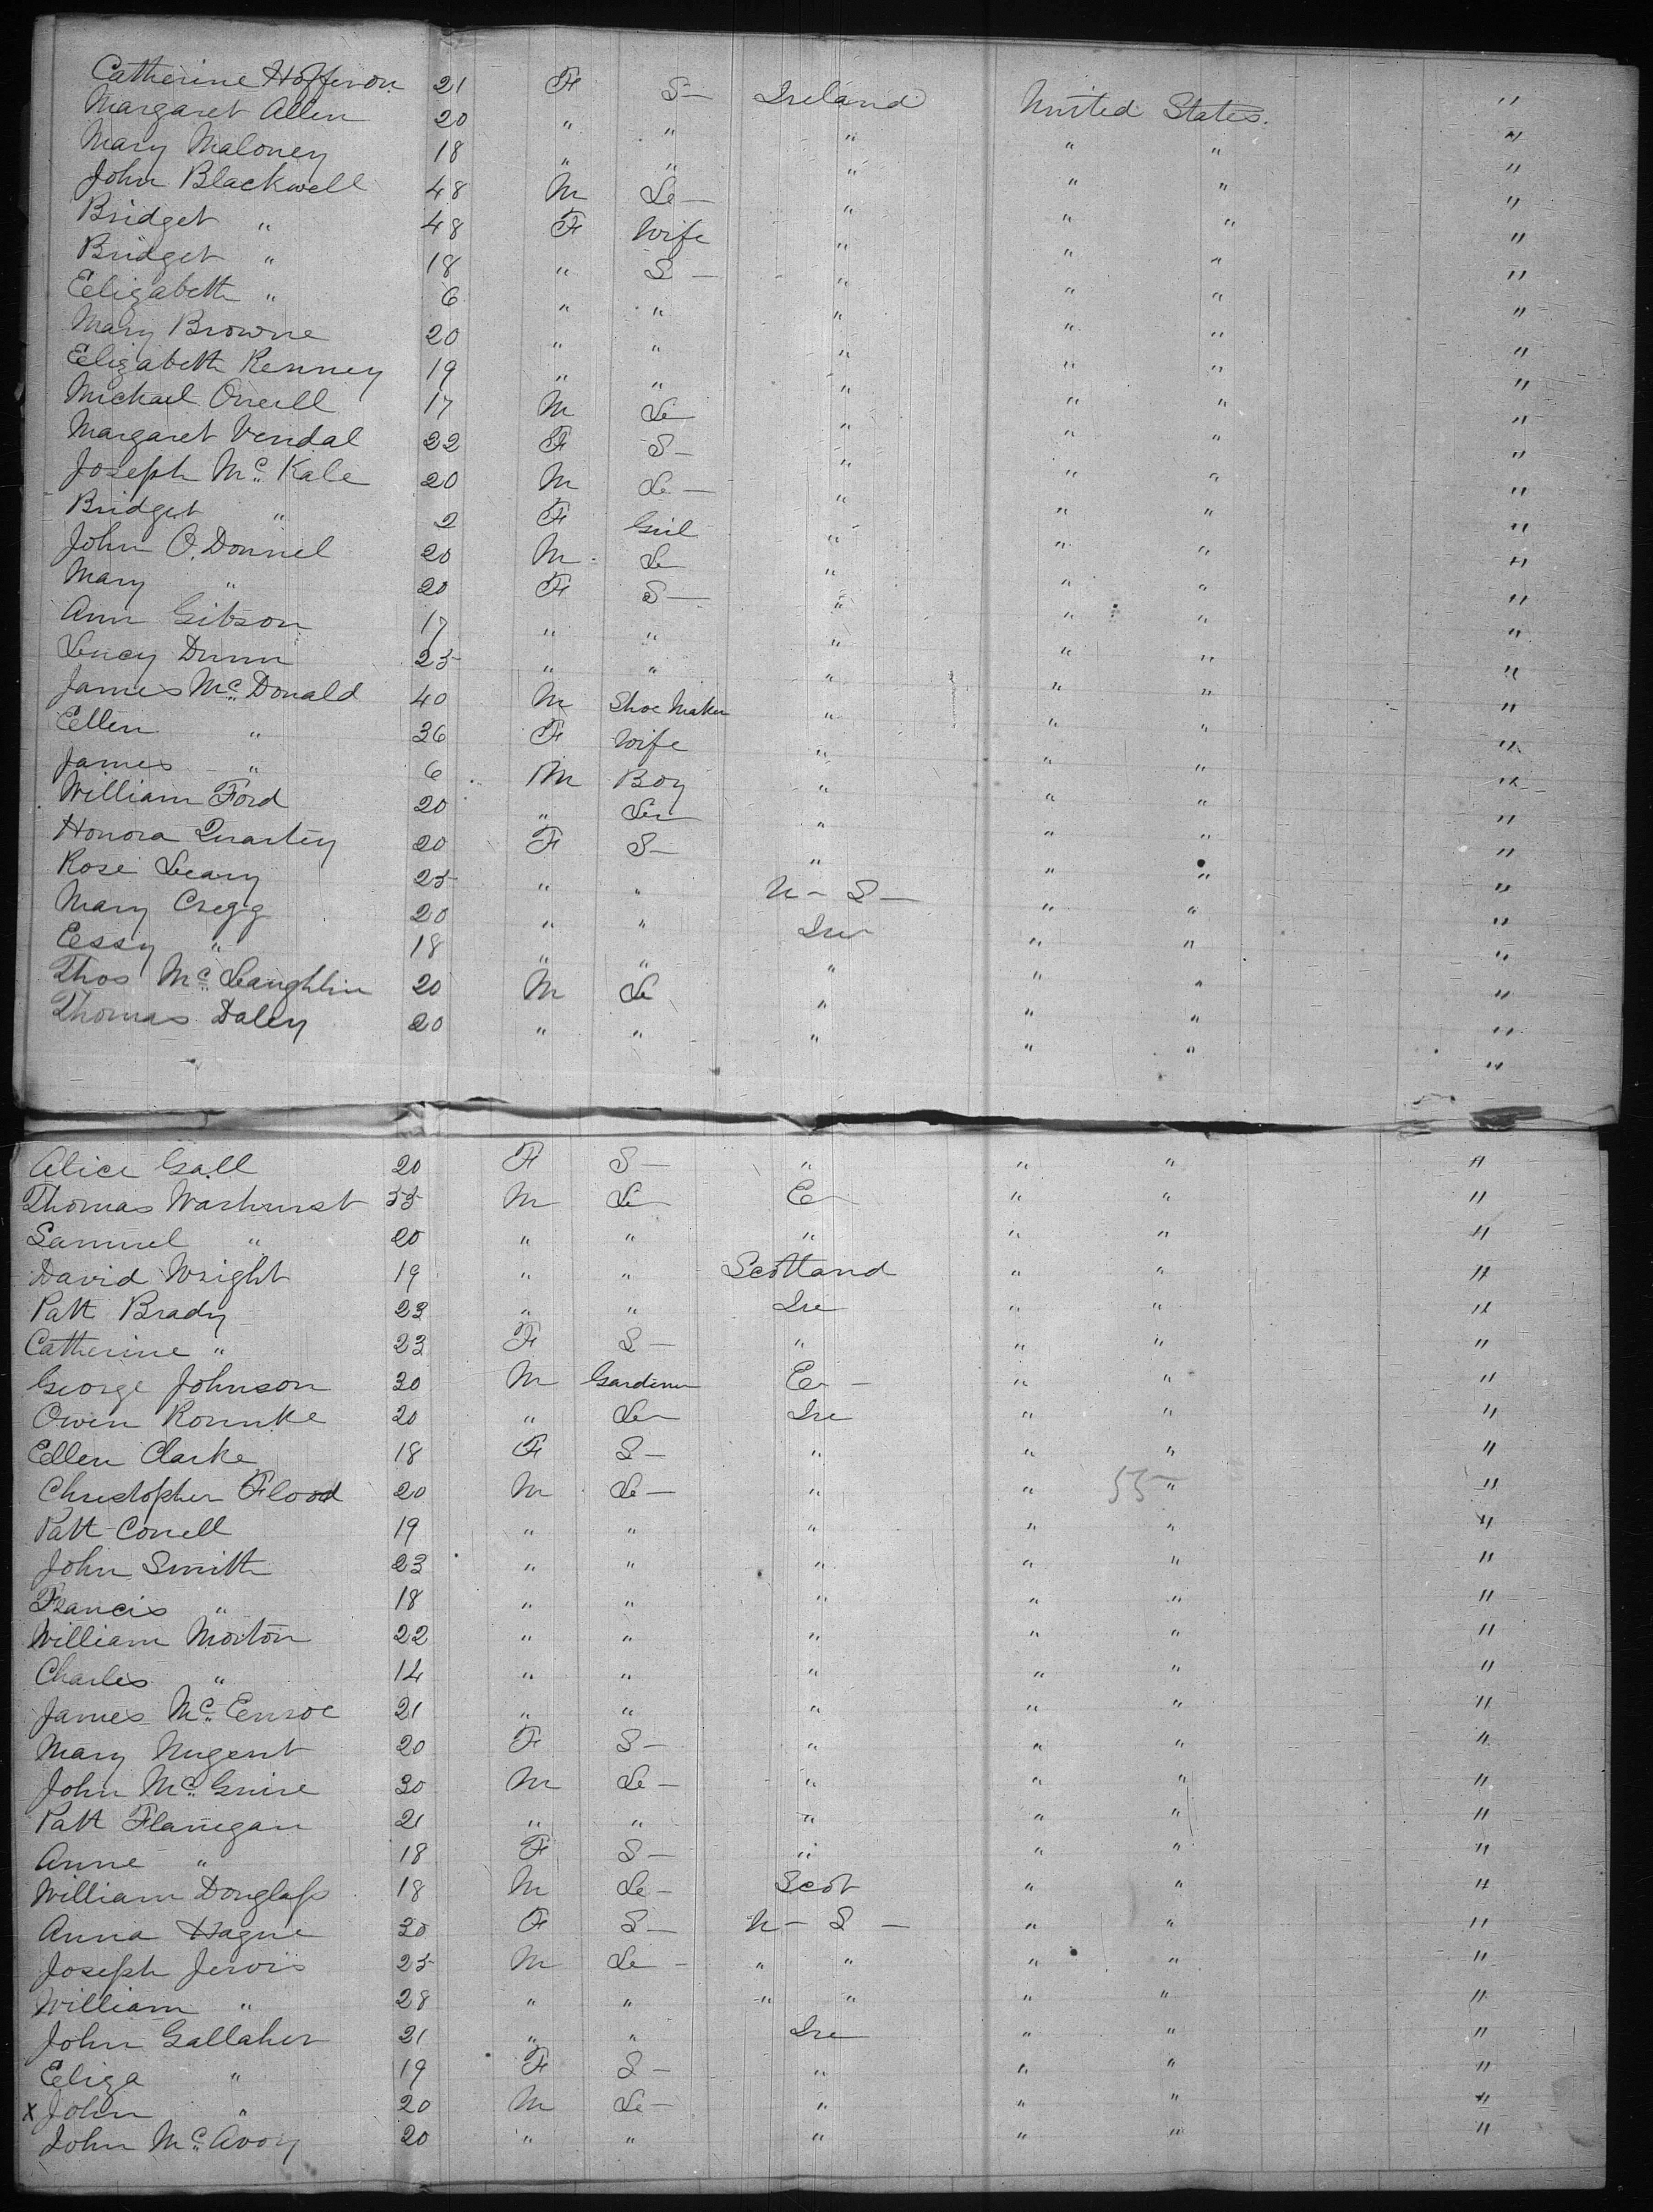 Catherine Hofferon 21 F S— Ireland United States. "
Margaret Allen 20 " " " " " "
Mary Maloney 18 " " " " " "
John Blackwell 48 M La— " " " "
Bridget " 48 F Wife " " " "
Bridget " 18 " S— " " " "
Elizabeth " 6 " " " " " "
Mary Browne 20 " " " " " "
Elizabeth Kenney 19 " " " " " "
Michael Oneill 17 M La " " " "
Margaret Vendal 22 F S— " " " "
Joseph Mc Kale 20 M La— " " " "
Bridget " 2 F Girl " " " "
John O. Donnel 20 M La " " " "
Mary " 20 F S— " " " "
Ann Gibson 17 " " " " " "
Lucy Dunn 25 " " " " " "
James Mc Donald 40 M Shoe Maker " " " "
Ellen " 36 F Wife " " " "
James " 6 M Boy " " " "
William Ford 20 " La " " " "
Honora Quartey 20 F S— " " " "
Rose Leary 25 " " U— S— " " "
Mary Cregg 20 " " Ire " " "
Essy " 18 " " " " " "
Thos Mc Laughlin 20 M La " " " "
Thomas Daley 20 " " " " " "
Alice Gall 20 F S— " " " "
Thomas Warhurst 55 M La E— " " "
Samuel " 20 " " " " " "
David Wright 19 " " Scottland " " "
Patt Brady 23 " " Ire " " "
Catherine " 23 F S— " " " "
George Johnson 30 M Gardener E— " " "
Owen Rourke 20 " La Ire " " "
Ellen Clarke 18 F S— " " " "
Christopher Flood 20 M La— " " 55 " "
Patt Conell 19 " " " " " "
John Smith 23 " " " " " "
Francis " 18 " " " " " "
William Morton 22 " " " " " "
Charles " 14 " " " " " "
James Mc Enroe 21 " " " " " "
Mary Nugent 20 F S— " " " "
John Mc Guire 30 M La— " " " "
Patt Flanegan 21 " " " " " "
Anne " 18 F S— " " " "
William Douglass 18 M La— Scot " " "
Anna Hague 30 F S— U— S— " " "
Joseph Jervis 25 M La— " " " " "
William " 28 " " " " " " "
John Gallaher 21 " " Ire " " "
Eliza " 19 F S— " " " "
x John " 20 M La— " " " "
John Mc Avoy 20 " " " " " "